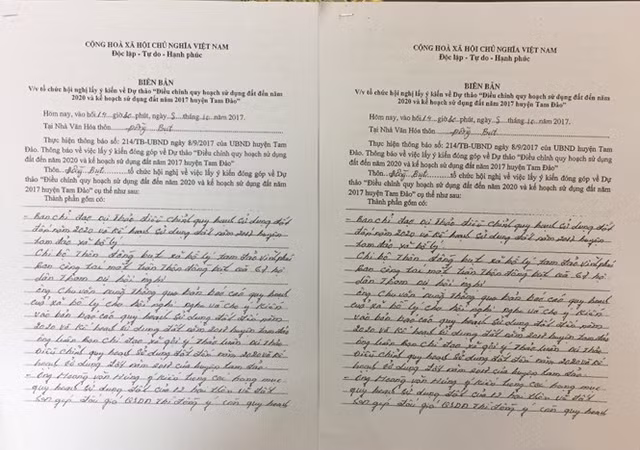 CỘNG HOÀ XÃ HỘI CHỦ NGHĨA VIỆT NAM
Độc lập - Tự do - Hạnh phúc
BIÊN BẢN
V/v tổ chức hội nghị lấy ý kiến về Dự thảo "Điều chỉnh quy hoạch sử dụng đất đến năm
2020 và kế hoạch sử dụng đất năm 2017 huyện Tam Đảo"
Hôm nay, vào hồi 19 giờ 30 phút, ngày 5 tháng 10 năm 2017.
Tại Nhà Văn Hóa thôn Đồng Bụt
Thực hiện thông báo số: 214/TB-UBND ngày 8/9/2017 của UBND huyện Tam
Đảo. Thông báo về việc lấy ý kiến đóng góp về Dự thảo "Điều chỉnh quy hoạch sử dụng
đất đến năm 2020 và kế hoạch sử dụng đất năm 2017 huyện Tam Đảo"
Thôn Đồng Bụt tổ chức hội nghị về việc lấy ý kiến đóng góp về Dự
thảo "Điều chỉnh quy hoạch sử dụng đất đến năm 2020 và kế hoạch sử dụng đất năm
2017 huyện Tam Đảo" cụ thể như sau:
Thành phần gồm có:
- Ban chỉ đạo Dự Thảo điều chỉnh quy hoạch sử dụng đất
đến năm 2020 và kế hoạch sử dụng đất năm 2017 huyện
tam đảo xã hồ lý
Chi bộ Thôn đồng bụt xã hồ lý tam đảo Vĩnh phú
ban công tác mặt trận Thôn đồng bụt
dân Tham dự hội nghị
ông Chu văn Thông qua bản báo cáo quy hoạch
của xã hồ lý cho hội nghị nghe và cho ý kiến
vào bản báo cáo quy hoạch sử dụng đất đến năm
2020 và kế hoạch sử dụng đất năm 2017 huyện tam đảo
ban chỉ đạo xã gợi ý Thảo luận Dự Thảo
Điều chỉnh quy hoạch sử dụng đất đến năm 2020 và kế
hoạch sử dụng đất năm 2017 của huyện tam đảo
- ông Hoàng văn Hùng ý kiến trong các hạng mục
quy hoạch sử dụng đất của 12 hộ dân và đất
QSDĐ Thì đồng ý còn quy hoạch
CỘNG HOÀ XÃ HỘI CHỦ NGHĨA VIỆT NAM
Độc lập - Tự do - Hạnh phúc
BIÊN BẢN
V/v tổ chức hội nghị lấy ý kiến về Dự thảo "Điều chỉnh quy hoạch sử dụng đất đến năm
2020 và kế hoạch sử dụng đất năm 2017 huyện Tam Đảo"
Hôm nay, vào hồi 19 giờ 30 phút, ngày 5 tháng 10 năm 2017.
Tại Nhà Văn Hóa thôn Đồng Bụt
Thực hiện thông báo số: 214/TB-UBND ngày 8/9/2017 của UBND huyện Tam
Đảo. Thông báo về việc lấy ý kiến đóng góp về Dự thảo "Điều chỉnh quy hoạch sử dụng
đất đến năm 2020 và kế hoạch sử dụng đất năm 2017 huyện Tam Đảo"
Thôn Đồng Bụt tổ chức hội nghị về việc lấy ý kiến đóng góp về Dự
thảo "Điều chỉnh quy hoạch sử dụng đất đến năm 2020 và kế hoạch sử dụng đất năm
2017 huyện Tam Đảo" cụ thể như sau:
Thành phần gồm có:
- Ban chỉ đạo Dự Thảo điều chỉnh quy hoạch sử dụng đất
đến năm 2020 và kế hoạch sử dụng đất năm 2017 huyện
tam đảo xã hồ lý
Chi bộ Thôn đồng bụt xã hồ lý tam đảo Vĩnh phú
ban công tác mặt trận Thôn đồng bụt
dân Tham dự hội nghị
ông Chu văn Thông qua bản báo cáo quy hoạch
của xã hồ lý cho hội nghị nghe và cho ý kiến
vào bản báo cáo quy hoạch sử dụng đất đến năm
2020 và kế hoạch sử dụng đất năm 2017 huyện tam đảo
ban chỉ đạo xã gợi ý Thảo luận Dự Thảo
Điều chỉnh quy hoạch sử dụng đất đến năm 2020 và kế
hoạch sử dụng đất năm 2017 của huyện tam đảo
- ông Hoàng văn Hùng ý kiến trong các hạng mục
quy hoạch sử dụng đất của 12 hộ dân và đất
QSDĐ Thì đồng ý còn quy hoạch